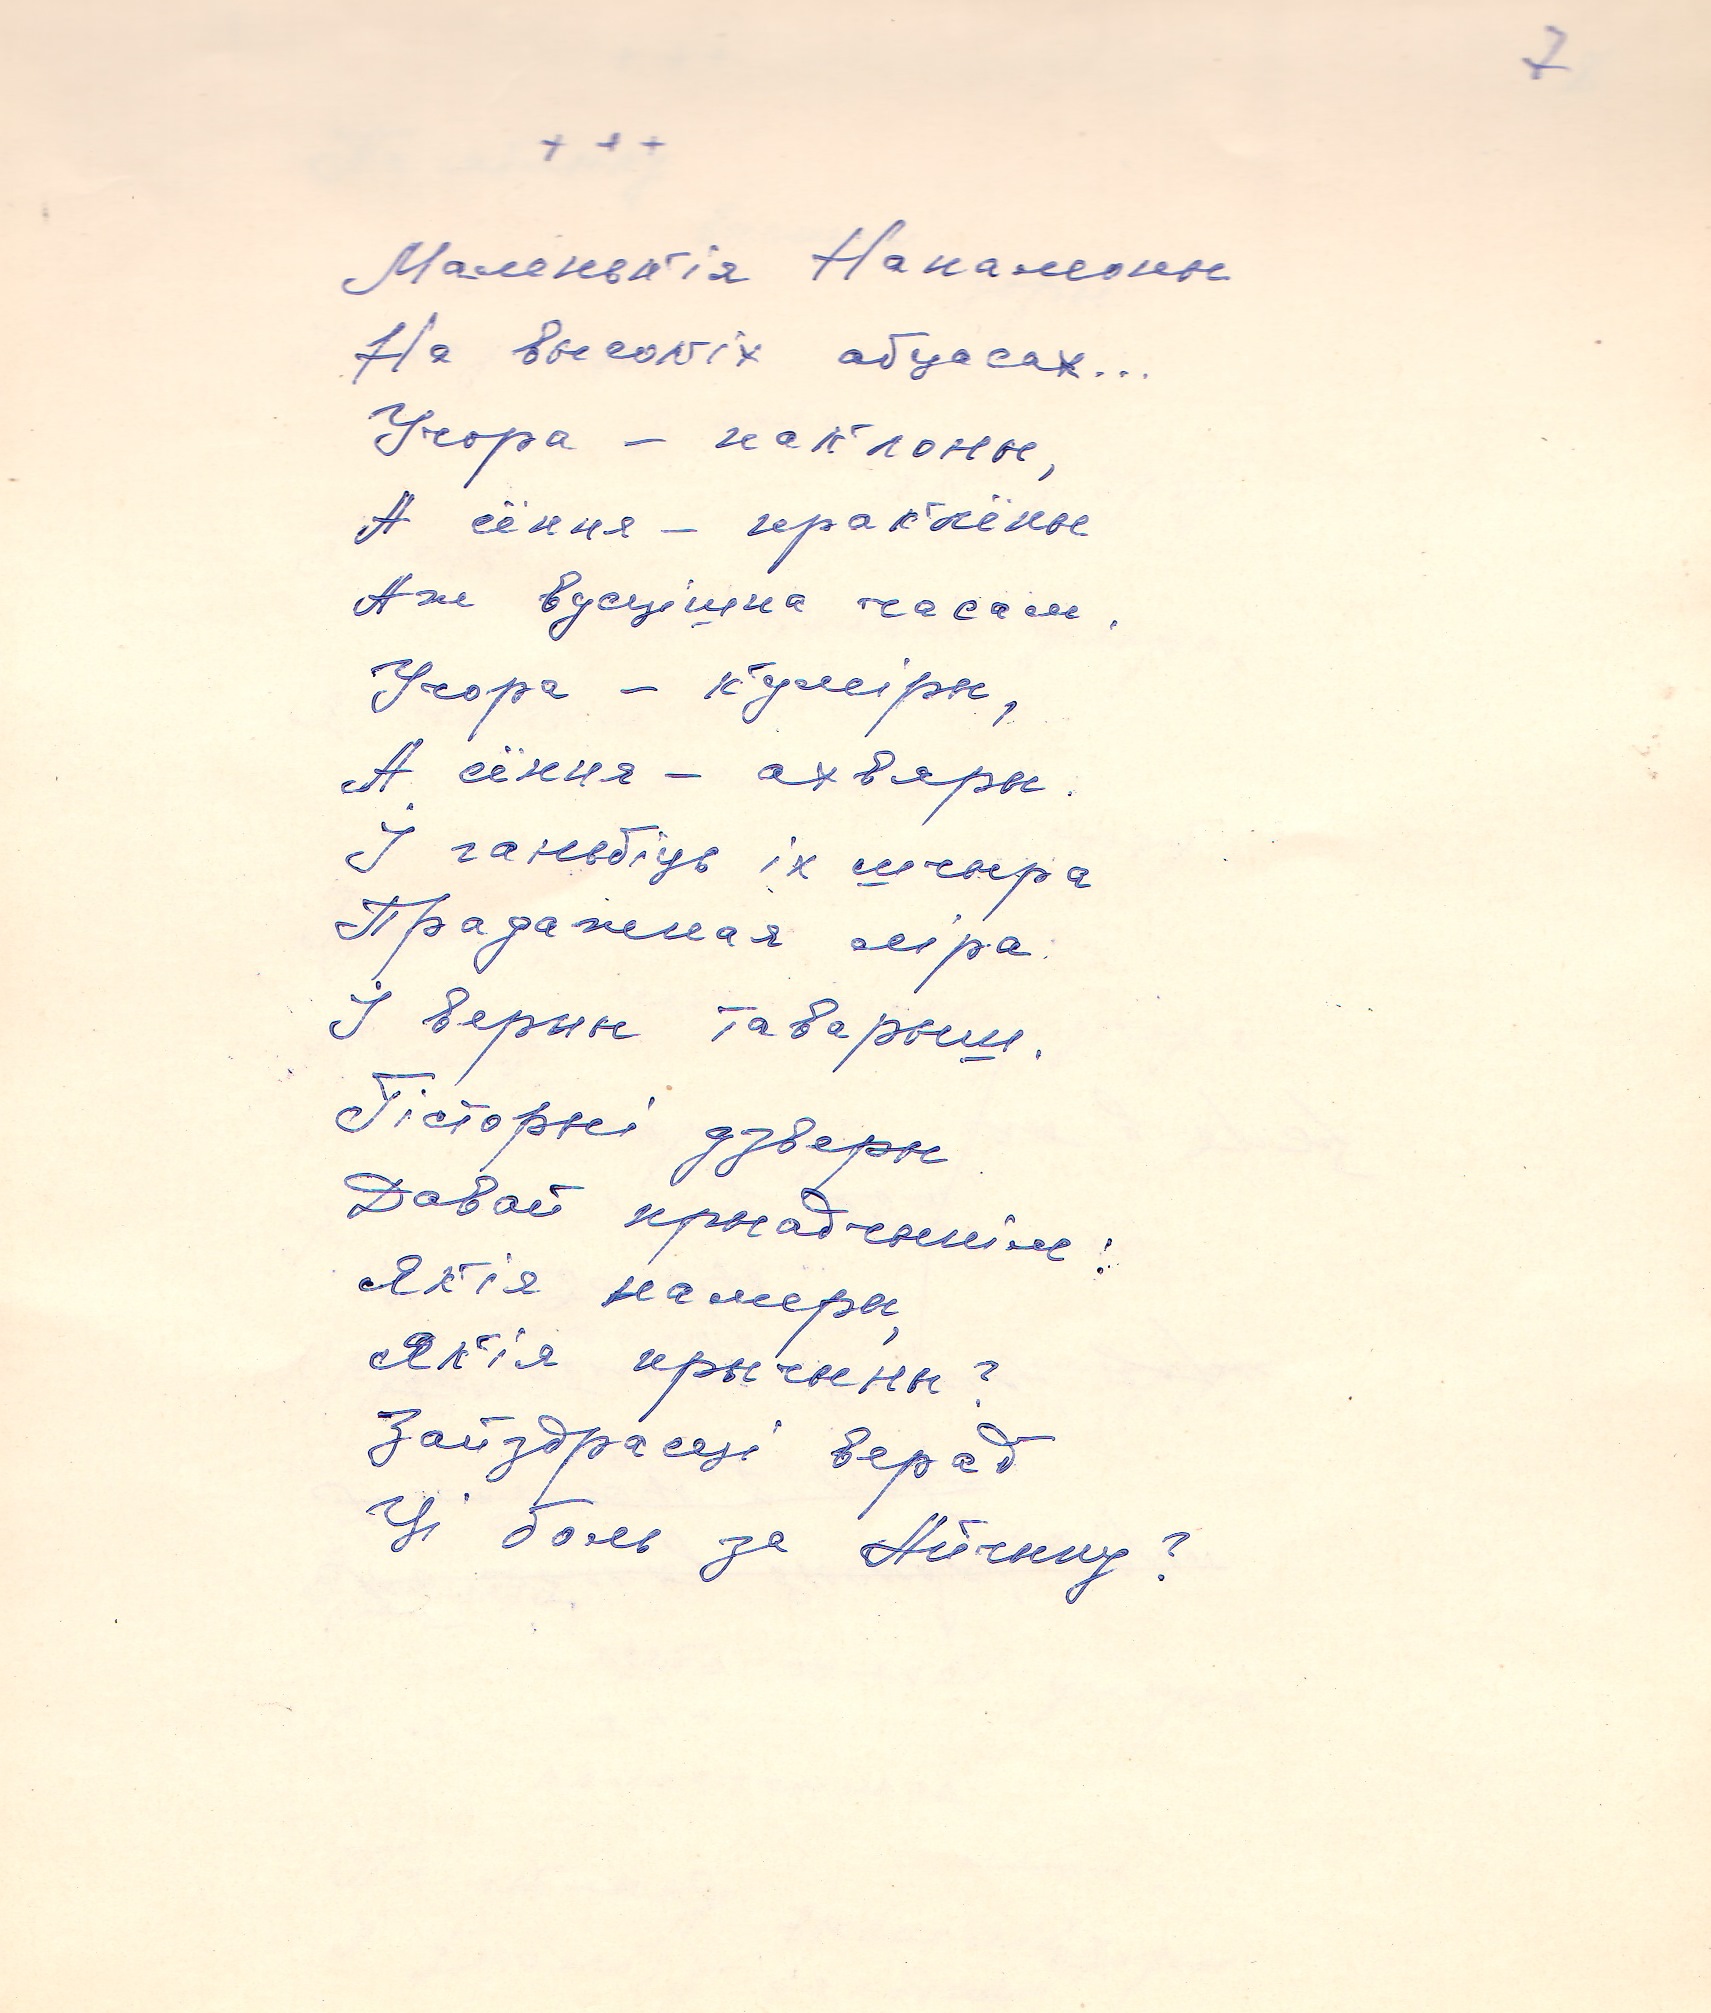 7
+ + +
Маленькія Напалеоны
На высокіх абцасах...
Учора – паклоны,
А сёння – праклёны
Аж вусцішна часам.
Учора – куміры,
А сёння – ахвяры.
І ганьбіць іх шчыра
Прадажная ліра.
І верны таварыш.
Гісторыі дзверы
Давай прыадчынім:
Якія намеры,
Якія прычыны?
Зайздрасці вераб
Ці боль за Айчыну?